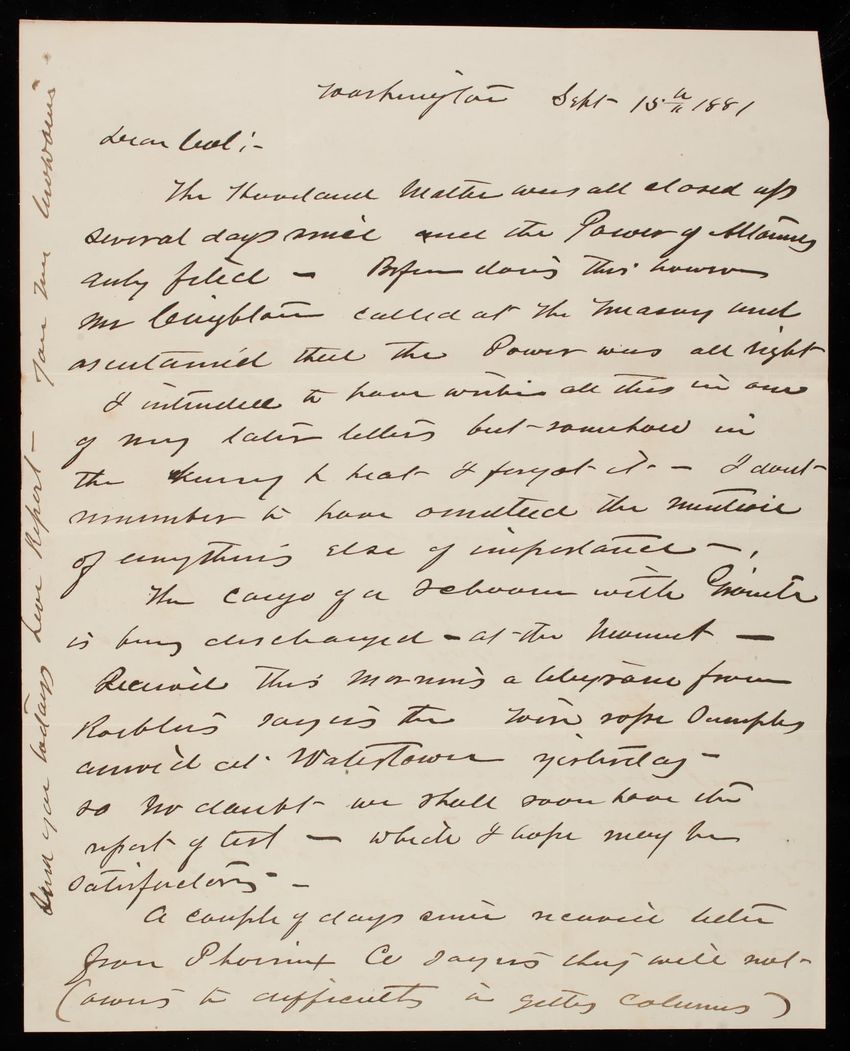 Washington Sept 15th 1881
Dear Col:-
The Thoveland Matter was all closed up
several days since and the Power of Attorney
duly filed - Before doing this however
Mr Coughlan called at the Treasury and
ascertained that the Power was all right
I intended to have written all this in one
of my later letters but somehow in
the hurry & heat I forgot it - I don't
remember to have omitted the mention
of anything else of importance -.
The cargo of a schooner with Granite
is being discharged - at the Monument -
Received this morning a telegram from
Roeblings saying the wire rope samples
arrived at Watertown yesterday -
so no doubt we shall soon have the
report of test - which I hope may be
satisfactory -
A couple of days since received letter
from Phoenix Co saying they will not
(owing to difficulty in getting columns)
Send you todays Levee Report -